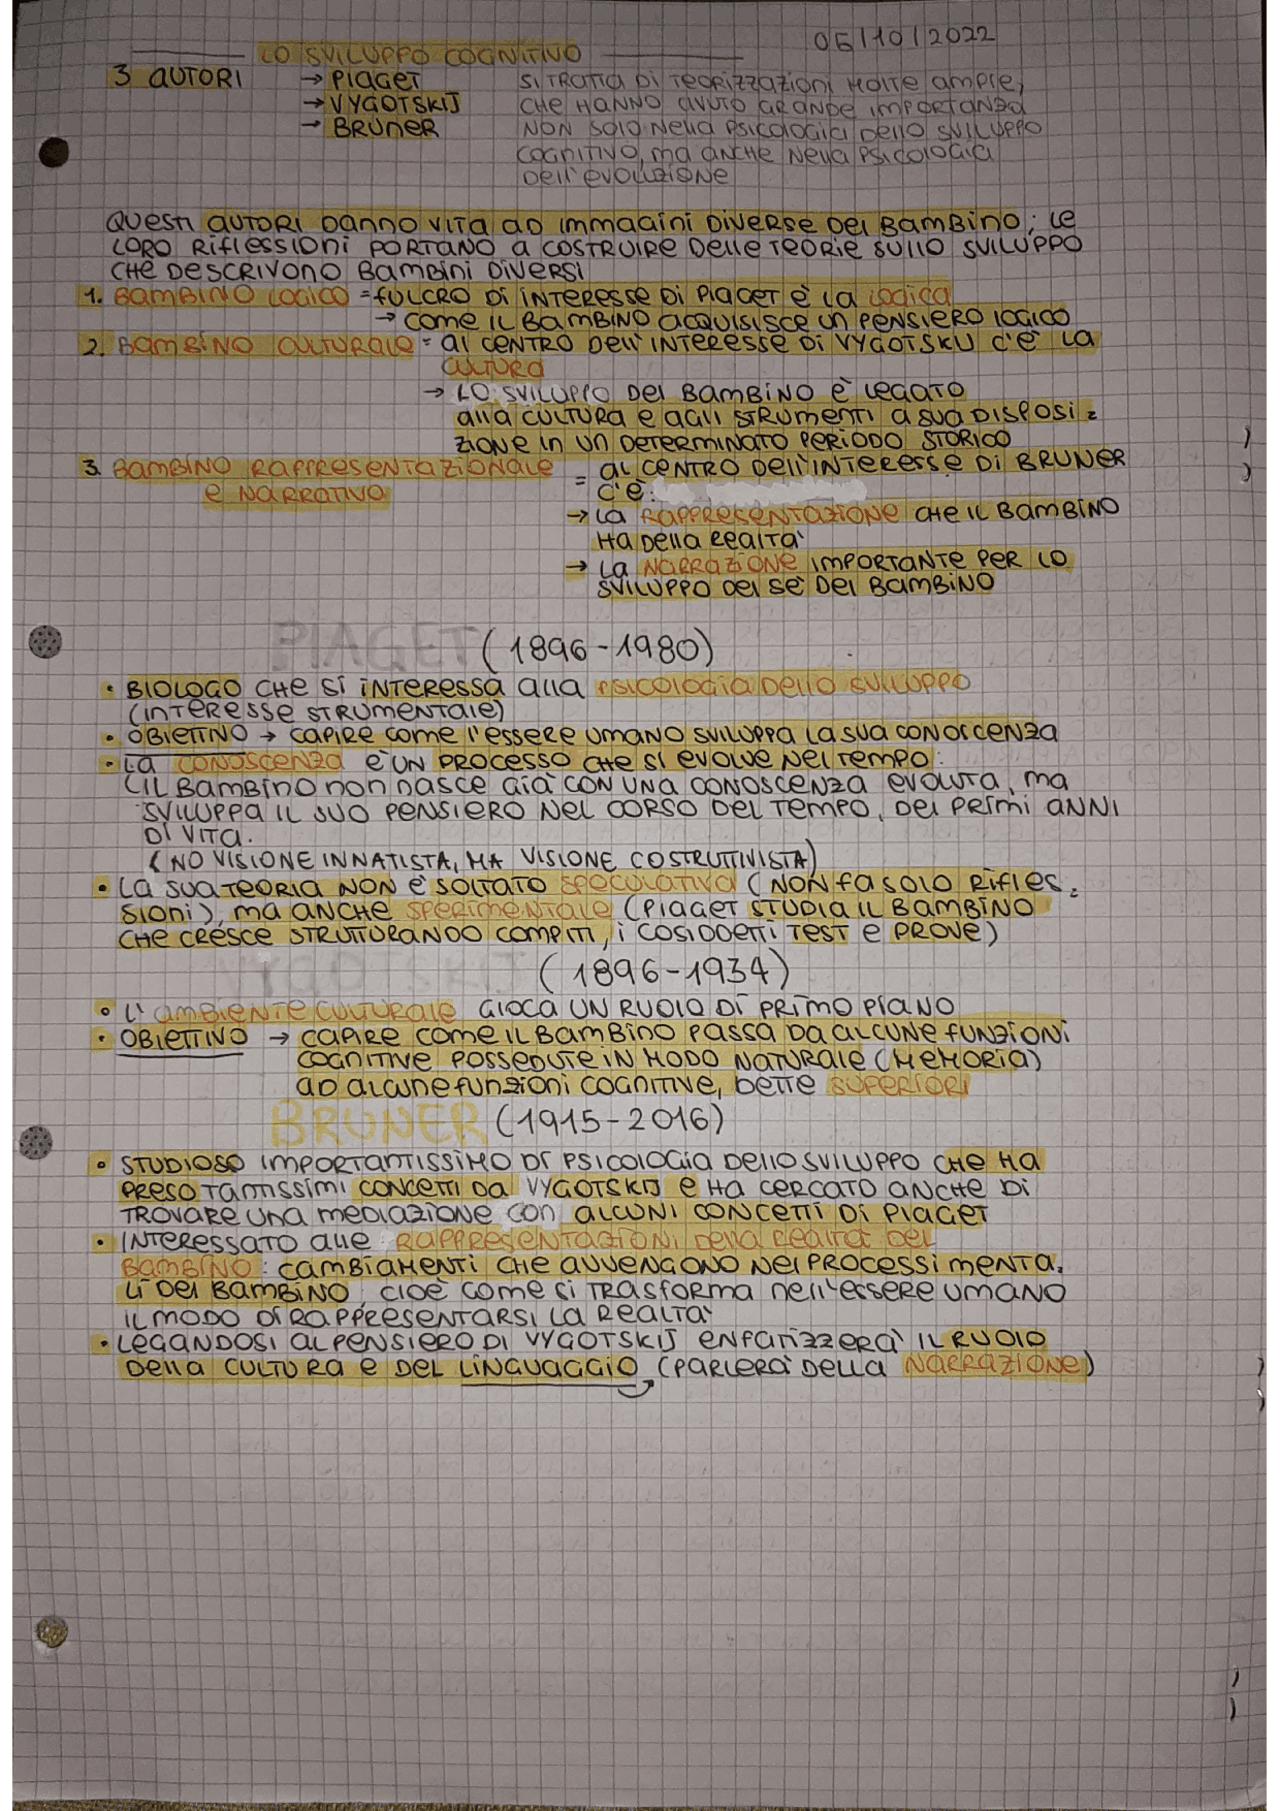 06/10/2022
LO SVILUPPO COGNITIVO
3 AUTORI → PIAGET
→ VYGOTSKIJ
→ BRUNER
SI TRATTA DI TEORIZZAZIONI MOLTE AMPIE,
CHE HANNO AVUTO GRANDE IMPORTANZA
NON SOLO NELLA PSICOLOGIA DELLO SVILUPPO
COGNITIVO, MA ANCHE NELLA PSICOLOGIA
DELL'EVOLUZIONE
QUESTI AUTORI DANNO VITA AD IMMAGINI DIVERSE DEL BAMBINO; LE
LORO RIFLESSIONI PORTANO A COSTRUIRE DELLE TEORIE SULLO SVILUPPO
CHE DESCRIVONO BAMBINI DIVERSI
1. BAMBINO LOGICO = FULCRO DI INTERESSE DI PIAGET È LA LOGICA
→ COME IL BAMBINO ACQUISISCE UN PENSIERO LOGICO
2. BAMBINO CULTURALE = AL CENTRO DELL'INTERESSE DI VYGOTSKIJ C'È LA
CULTURA
→ LO SVILUPPO DEL BAMBINO È LEGATO
ALLA CULTURA E AGLI STRUMENTI A SUA DISPOSI =
ZIONE IN UN DETERMINATO PERIODO STORICO
3. BAMBINO RAPPRESENTAZIONALE
E NARRATIVO
= AL CENTRO DELL'INTERESSE DI BRUNER
C'È:
→ LA RAPPRESENTAZIONE CHE IL BAMBINO
HA DELLA REALTA'
→ LA NARRAZIONE IMPORTANTE PER LO
SVILUPPO DEL SÈ DEL BAMBINO
PIAGET (1896-1980)
• BIOLOGO CHE SI INTERESSA ALLA PSICOLOGIA DELLO SVILUPPO
(INTERESSE STRUMENTALE)
• OBIETTIVO → CAPIRE COME L'ESSERE UMANO SVILUPPA LA SUA CONOSCENZA
• LA CONOSCENZA È UN PROCESSO CHE SI EVOLVE NEL TEMPO:
IL BAMBINO NON NASCE GIÀ CON UNA CONOSCENZA EVOLUTA, MA
SVILUPPA IL SUO PENSIERO NEL CORSO DEL TEMPO, DEI PRIMI ANNI
DI VITA.
(NO VISIONE INNATISTA, MA VISIONE COSTRUTTIVISTA)
• LA SUA TEORIA NON È SOLTATO SPECULATIVA (NON FA SOLO RIFLES =
SIONI), MA ANCHE SPERIMENTALE (PIAGET STUDIA IL BAMBINO
CHE CRESCE STRUTTURANDO COMPITI, I COSIDDETTI TEST E PROVE)
VYGOTSKIJ (1896-1934)
• L'AMBIENTE CULTURALE GIOCA UN RUOLO DI PRIMO PIANO
• OBIETTIVO → CAPIRE COME IL BAMBINO PASSA DA ALCUNE FUNZIONI
COGNITIVE POSSEDUTE IN MODO NATURALE (MEMORIA)
AD ALCUNE FUNZIONI COGNITIVE, DETTE SUPERIORI
BRUNER (1915-2016)
• STUDIOSO IMPORTANTISSIMO DI PSICOLOGIA DELLO SVILUPPO CHE HA
PRESO TANTISSIMI CONCETTI DA VYGOTSKIJ E HA CERCATO ANCHE DI
TROVARE UNA MEDIAZIONE CON ALCUNI CONCETTI DI PIAGET
• INTERESSATO ALLE RAPPRESENTAZIONI DELLA REALTÀ DEL
BAMBINO: CAMBIAMENTI CHE AVVENGONO NEI PROCESSI MENTA=
LI DEL BAMBINO, CIOÈ COME SI TRASFORMA NELL'ESSERE UMANO
IL MODO DI RAPPRESENTARSI LA REALTÀ
• LEGANDOSI AL PENSIERO DI VYGOTSKIJ ENFATIZZERÀ IL RUOLO
DELLA CULTURA E DEL LINGUAGGIO (PARLERÀ DELLA NARRAZIONE)